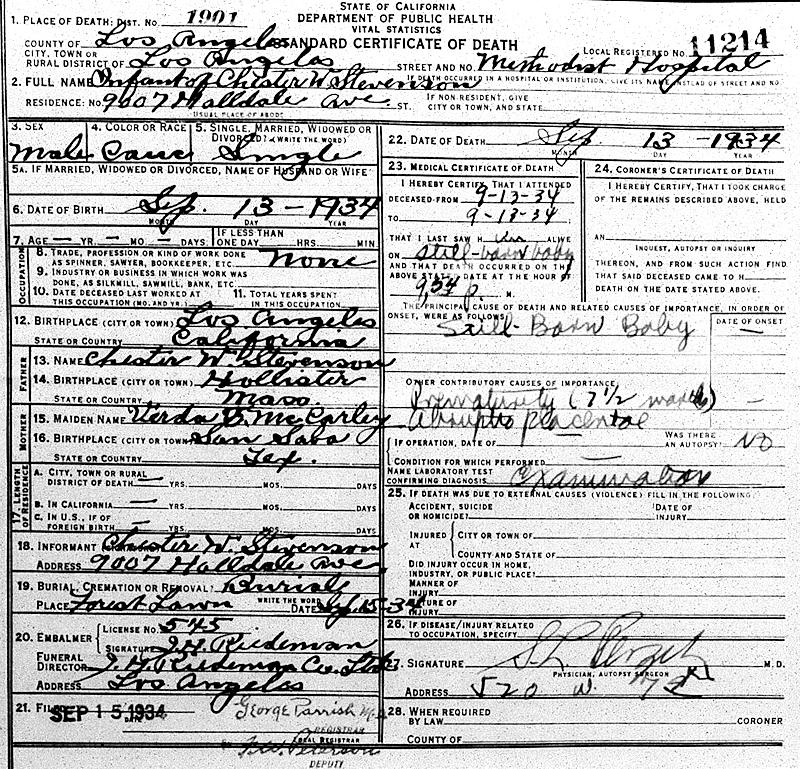 STATE OF CALIFORNIA
DEPARTMENT OF PUBLIC HEALTH
VITAL STATISTICS
STANDARD CERTIFICATE OF DEATH
1. PLACE OF DEATH: DIST. NO. 1901
LOCAL REGISTERED NO. 11214
COUNTY OF Los Angeles
CITY, TOWN OR
RURAL DISTRICT OF Los Angeles STREET AND NO. Methodist Hospital
IF DEATH OCCURRED IN A HOSPITAL OR INSTITUTION, GIVE ITS NAME INSTEAD OF STREET AND NO.
2. FULL NAME Infant of Chester W. Stevenson
RESIDENCE: NO. 9007 Halldale Ave ST. IF NON-RESIDENT, GIVE CITY, TOWN, AND STATE
USUAL PLACE OF ABODE
3. SEX Male
4. COLOR OR RACE Cauc
5. SINGLE, MARRIED, WIDOWED OR DIVORCED? (WRITE THE WORD) Single
5A. IF MARRIED, WIDOWED OR DIVORCED, NAME OF HUSBAND OR WIFE
6. DATE OF BIRTH Sep. 13 - 1934
MONTH DAY YEAR
7. AGE — YRS. — MO — DAYS IF LESS THAN ONE DAY HRS. MIN
OCCUPATION
8. TRADE, PROFESSION OR KIND OF WORK DONE AS SPINNER, SAWYER, BOOKKEEPER, ETC. None
9. INDUSTRY OR BUSINESS IN WHICH WORK WAS DONE, AS SILKMILL, SAWMILL, BANK, ETC.
10. DATE DECEASED LAST WORKED AT THIS OCCUPATION (MO. AND YR.)
11. TOTAL YEARS SPENT IN THIS OCCUPATION
12. BIRTHPLACE (CITY OR TOWN) Los Angeles
STATE OR COUNTRY California
FATHER
13. NAME Chester W. Stevenson
14. BIRTHPLACE (CITY OR TOWN) Hollister
STATE OR COUNTRY Mass.
MOTHER
15. MAIDEN NAME Verda B. McCarley
16. BIRTHPLACE (CITY OR TOWN) San Saba
STATE OR COUNTRY Tex.
17. LENGTH OF RESIDENCE
A. CITY, TOWN OR RURAL DISTRICT OF DEATH — YRS. MOS. DAYS
B. IN CALIFORNIA — YRS. MOS. DAYS
C. IN U.S., IF OF FOREIGN BIRTH — YRS. MOS. DAYS
18. INFORMANT Chester W. Stevenson
ADDRESS 9007 Halldale Ave.
19. BURIAL, CREMATION OR REMOVAL? Burial
WRITE THE WORD
PLACE Forest Lawn DATE Sep. 15-34
20. EMBALMER LICENSE NO. 545
SIGNATURE J.H. Riedeman
FUNERAL DIRECTOR
ADDRESS Los Angeles
21. FILED SEP 15 1934 George Parrish M.D.
DATE
REGISTRAR
LOCAL REGISTRAR
Peterson
DEPUTY
22. DATE OF DEATH Sep. 13 - 1934
MONTH DAY YEAR
23. MEDICAL CERTIFICATE OF DEATH
I HEREBY CERTIFY, THAT I ATTENDED
DECEASED FROM 9-13-34
TO 9-13-34
THAT I LAST SAW H ALIVE
ON still-born baby
AND THAT DEATH OCCURRED ON THE
ABOVE STATED DATE AT THE HOUR OF
9:54 p. M.
24. CORONER'S CERTIFICATE OF DEATH
I HEREBY CERTIFY, THAT I TOOK CHARGE
OF THE REMAINS DESCRIBED ABOVE, HELD
AN
INQUEST, AUTOPSY OR INQUIRY
THEREON, AND FROM SUCH ACTION FIND
THAT SAID DECEASED CAME TO H
DEATH ON THE DATE STATED ABOVE.
THE PRINCIPAL CAUSE OF DEATH AND RELATED CAUSES OF IMPORTANCE, IN ORDER OF
ONSET, WERE AS FOLLOWS: DATE OF ONSET
Still-Born Baby
OTHER CONTRIBUTORY CAUSES OF IMPORTANCE:
Prematurity (7 1/2 months) —
Abruptio placentae
IF OPERATION, DATE OF WAS THERE AN AUTOPSY? No
CONDITION FOR WHICH PERFORMED
NAME LABORATORY TEST CONFIRMING DIAGNOSIS Examination
25. IF DEATH WAS DUE TO EXTERNAL CAUSES (VIOLENCE) FILL IN THE FOLLOWING:
ACCIDENT, SUICIDE OR HOMICIDE? DATE OF INJURY
INJURED AT CITY OR TOWN OF
COUNTY AND STATE OF
DID INJURY OCCUR IN HOME, INDUSTRY, OR PUBLIC PLACE?
MANNER OF INJURY
NATURE OF INJURY
26. IF DISEASE/INJURY RELATED TO OCCUPATION, SPECIFY
27. SIGNATURE M.D.
PHYSICIAN, AUTOPSY SURGEON
ADDRESS 520 W. 7th
28. WHEN REQUIRED BY LAW CORONER
COUNTY OF